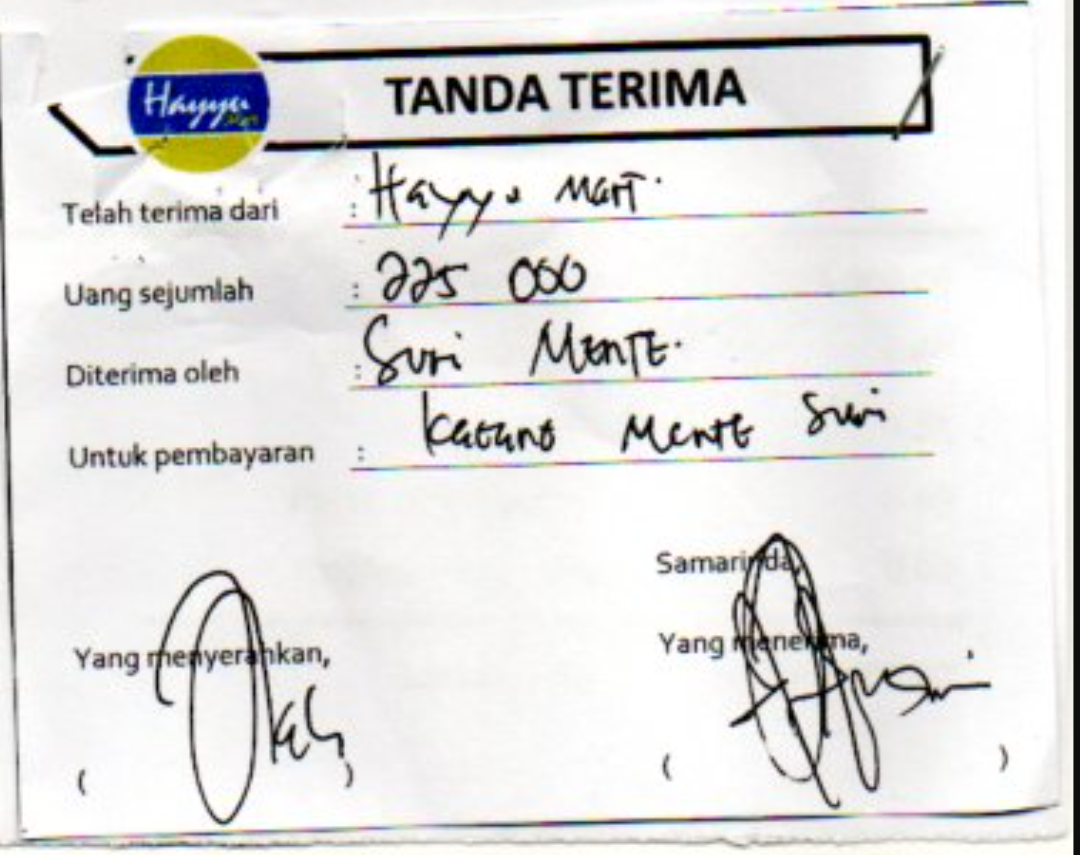 Hayyu Mart
TANDA TERIMA
Telah terima dari : Hayyu Mart.
Uang sejumlah : 225 000
Diterima oleh : Suri MENTE.
Untuk pembayaran : Kacang MENTE Suri
Samarinda,
Yang menyerahkan, Yang menerima,
( ) ( )